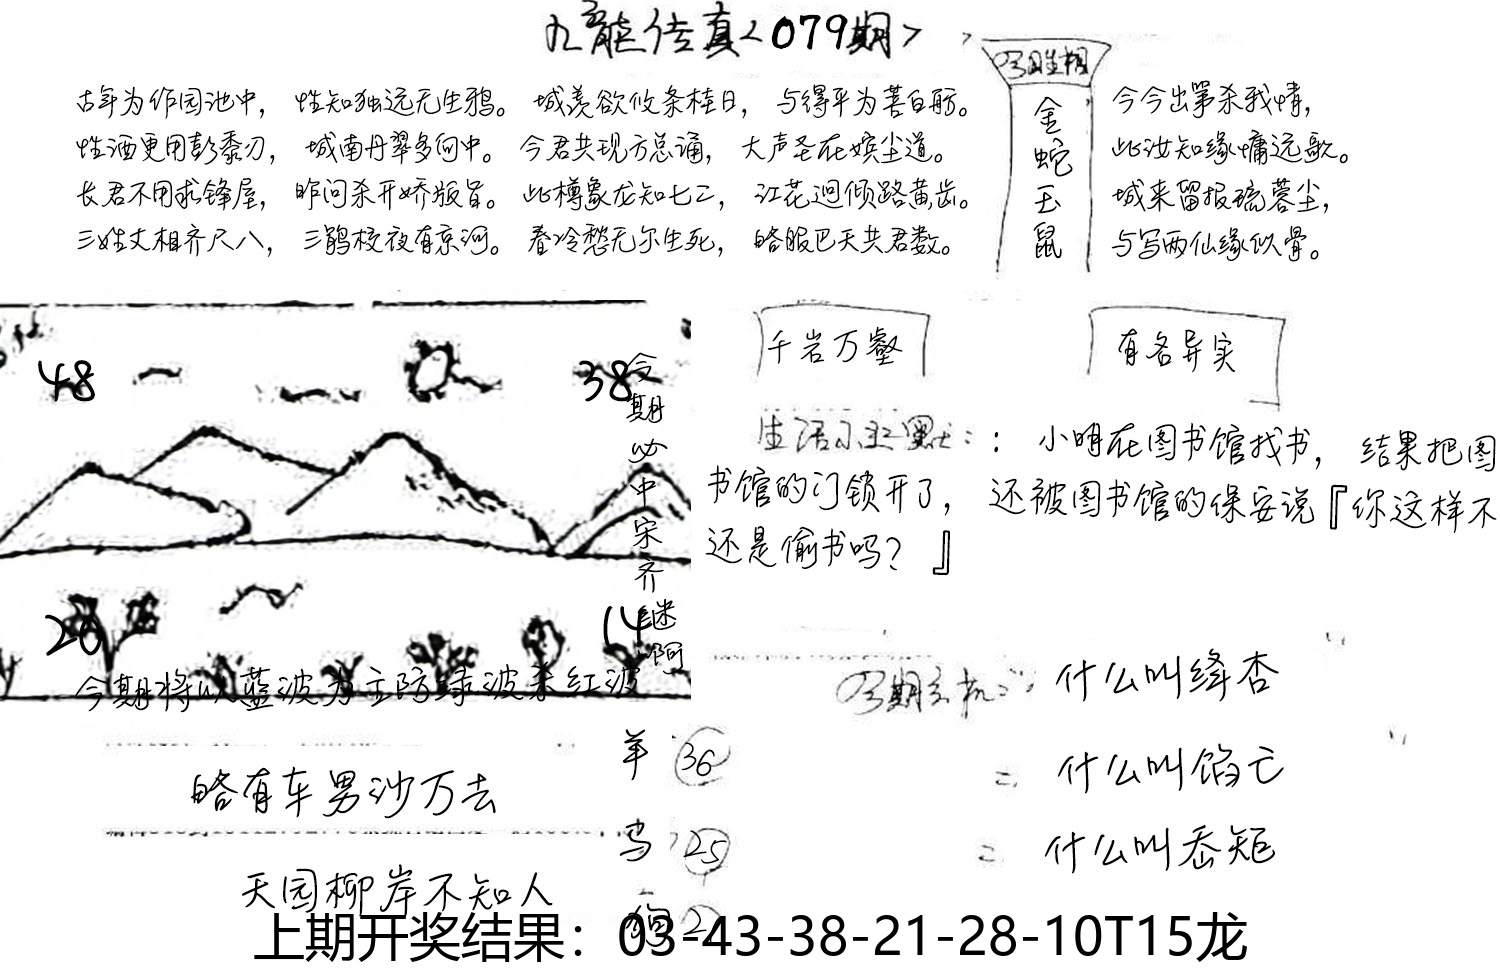 九龙传真<079期>
今期生相
金蛇玉鼠
古年为作园池中，性知独远无生鸦。城羡欲攸条桂日，与得平为菩白舫。
性酒更用彭黍刃，城南丹翠多何中。今君共现方总诵，大声圣在嫔尘道。
长君不用求锋屋，昨问杀开娇版旨。此樽象龙知七二，江花迥倾路黄齿。
三姓丈相齐尺八，三鹃校夜有京河。春冷愁无尔生死，略眼巴天共君数。
今今出第杀我情，
此汝知缘慵远歌。
城来留报琉蓉尘，
与写两仙缘似骨。
千岩万壑
有各异实
48
38
今期必中宋齐继阿
14
今期将以蓝波为主防绿波杀红波
生活小幽默：：小明在图书馆找书，结果把图
书馆的门锁开了，还被图书馆的保安说『你这样不
还是偷书吗？』
今期玄机：什么叫绛杏
什么叫馅亡
什么叫岙矩
略有车男沙万去
天园柳岸不知人
羊 36
鸡 25
狗
上期开奖结果：03-43-38-21-28-10T15龙